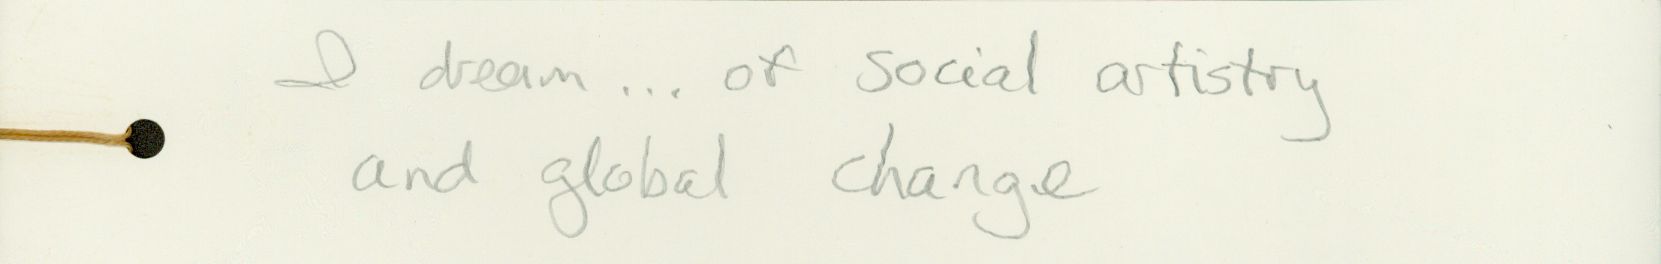 I dream... of social artistry
and global change